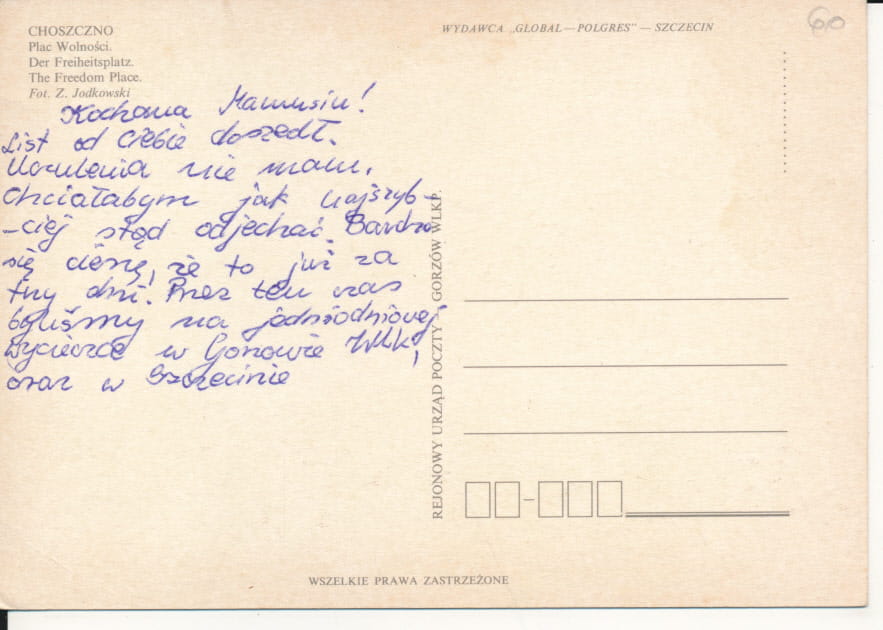 CHOSZCZNO
Plac Wolności.
Der Freiheitsplatz.
The Freedom Place.
Fot. Z. Jodkowski
WYDAWCA „GLOBAL—POLGRES" — SZCZECIN
60
Kochana Mamusiu!
List od Ciebie doszedł.
nie mam.
Chciałabym jak najszyb-
-ciej stąd odjechać. Bardzo
się cieszę, że to już za
trzy dni. Przez ten czas
byliśmy na jednodniowej
wycieczce w Gorzowie Wlk,
oraz w Szczecinie
REJONOWY URZĄD POCZTY GORZÓW WLKP.
WSZELKIE PRAWA ZASTRZEŻONE